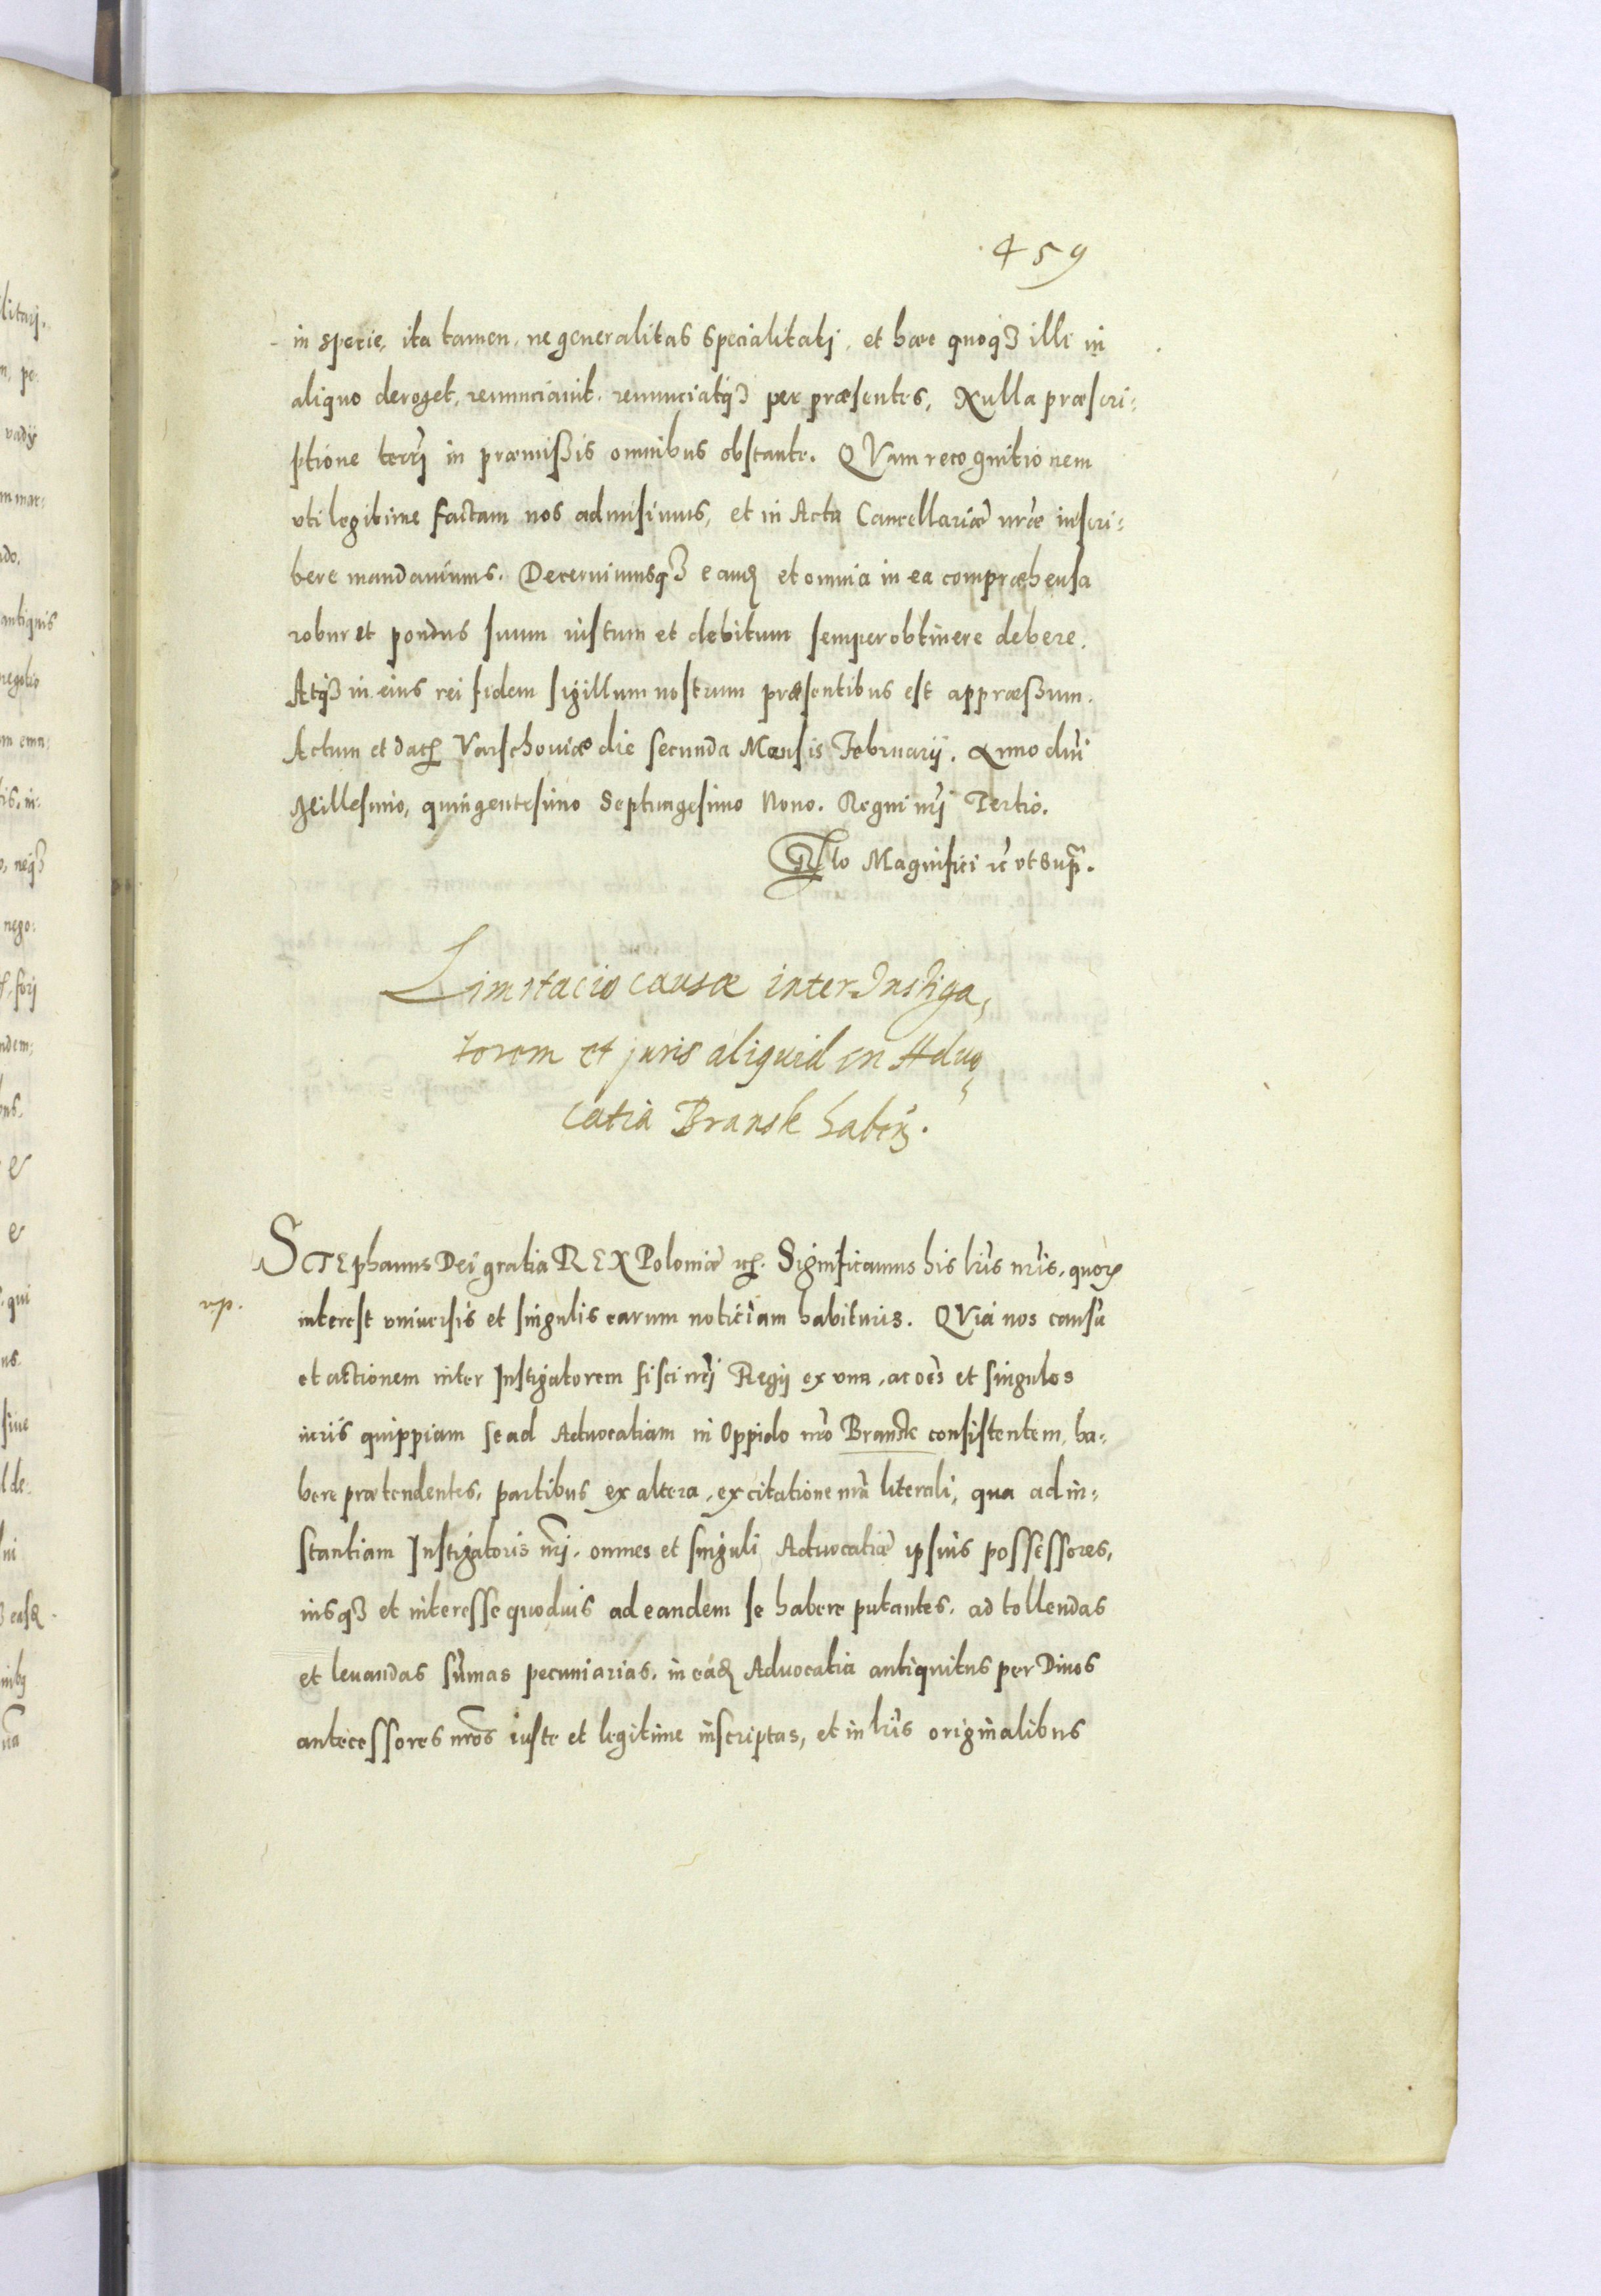 459
in specie, ita tamen, ne generalitas specialitatj, et haec quoqȝ illi in
aliquo deroget, renunciauit, renunciatqȝ per præsentes, Nulla præscri-
ptione terrj in præmißis omnibus obstante. QVam recognitionem
vti legitime factam nos admisimus, et in Acta Cancellariæ nræ inscri-
bere mandauimus. Decernimusqȝ eandꝫ et omnia in ea compræhensa
robur et pondus suum iustum et debitum semper obtinere debere.
Atqȝ in eius rei fidem sigillum nostrum præsentibus est appræßum.
Actum et dat Varschouiæ die secunda Mensis Februarij. Anno dni
Millesimo, quingentesimo Septuagesimo Nono. Regni nrj Tertio.
Rlo Magnifici rc vt supra.
Limitacio causæ inter Instiga,
torem et juris aliquid in Aduo,
catia Bransk haben.
STEphanus Dei gratia REX Poloniæ etc. Significamus his lris nris, quorꝫ
vp.
interest vniuersis et singulis earum noticiam habituris. QVia nos causā
et actionem inter Instigatorem fisci nrj Regij ex vna, ac oēs et singulos
iuris quippiam se ad Aduocatiam in Oppido nrō Bransk consistentem, ha-
bere prætendentes, partibus ex altera, ex citatione nrā literali, qua ad in-
stantiam Instigatoris nrj, omnes et singuli Aduocatiæ ipsius possessores,
iusqȝ et interesse quoduis ad eandem se habere putantes, ad tollendas
et leuandas sūmas pecuniarias, in eadꝫ Aduocatia antiquitus per Diuos
antecessores nrōs iuste et legitime inscriptas, et in lris originalibus